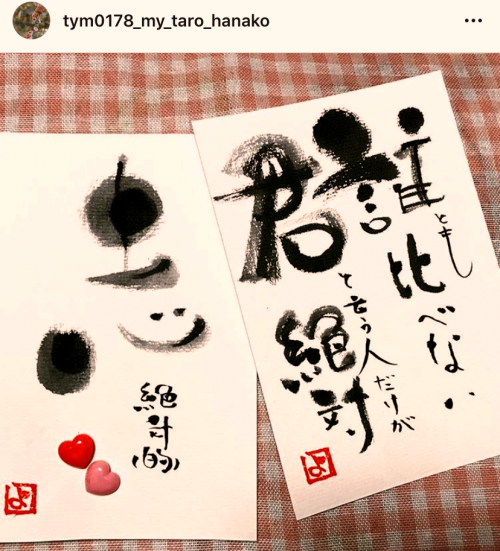 tym0178_my_taro_hanako
誰とも
比べない
君
と言う人だけが
絶対
よ
絶対的
よ